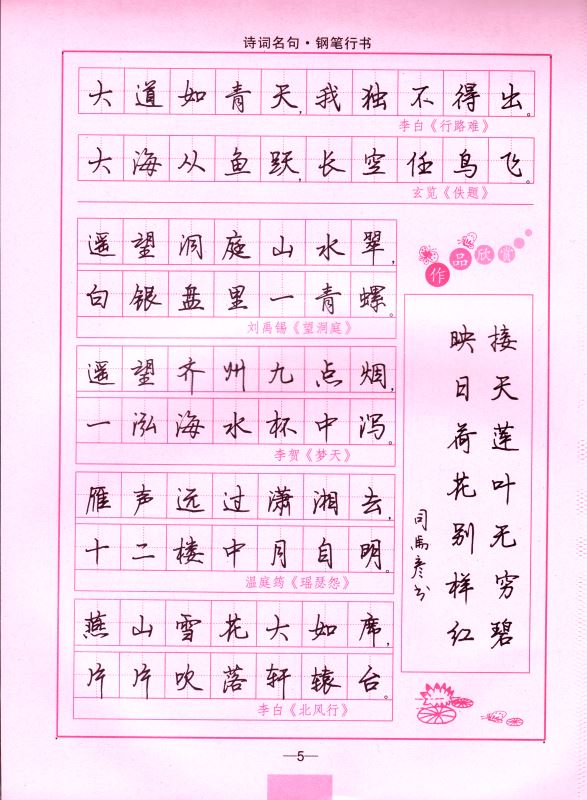 诗词名句·钢笔行书
大道如青天,我独不得出。
李白《行路难》
大海从鱼跃,长空任鸟飞。
玄览《佚题》
遥望洞庭山水翠,
白银盘里一青螺。
刘禹锡《望洞庭》
遥望齐州九点烟,
一泓海水杯中泻。
李贺《梦天》
雁声远过潇湘去,
十二楼中月自明。
温庭筠《瑶瑟怨》
燕山雪花大如席,
片片吹落轩辕台。
李白《北风行》
作品欣赏
接天莲叶无穷碧
映日荷花别样红
司马彦书
—5—